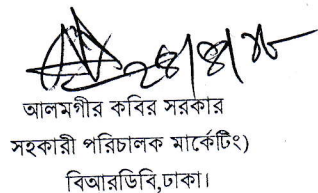 ২৪/৪/২৮
আলমগীর কবির সরকার
সহকারী পরিচালক মার্কেটিং)
বিআরডিবি,ঢাকা।